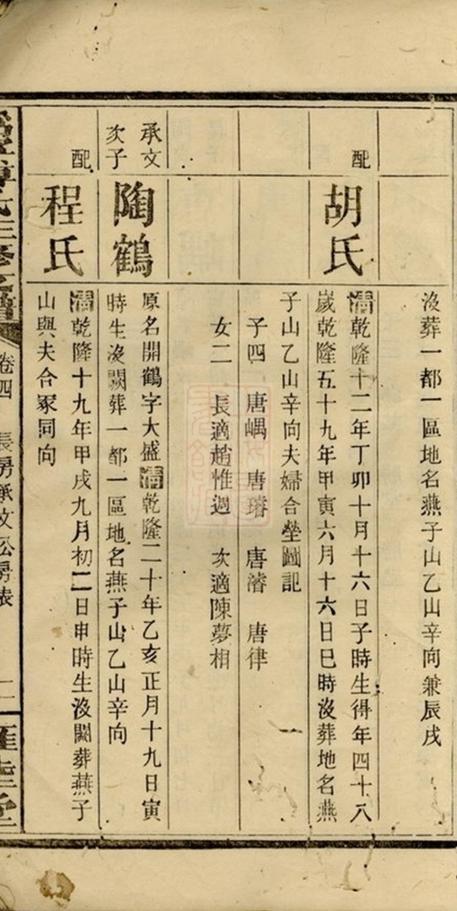 沒葬一都一區地名燕子山乙山辛向兼辰戌
配
胡氏
清乾隆十二年丁卯十月十六日子時生得年四十八
歲乾隆五十九年甲寅六月十六日巳時沒葬地名燕
子山乙山辛向夫婦合塋圖記
子四 唐嵎 唐璿 唐濬 唐律
女二 長適趙惟週 次適陳夢相
承文
次子
陶鶴
原名開鶴字大盛清乾隆二十年乙亥正月十九日寅
時生沒闕葬一都一區地名燕子山乙山辛向
配
程氏
清乾隆十九年甲戌九月初二日申時生沒闕葬燕子
山與夫合冢同向
卷四 長房承文公房表